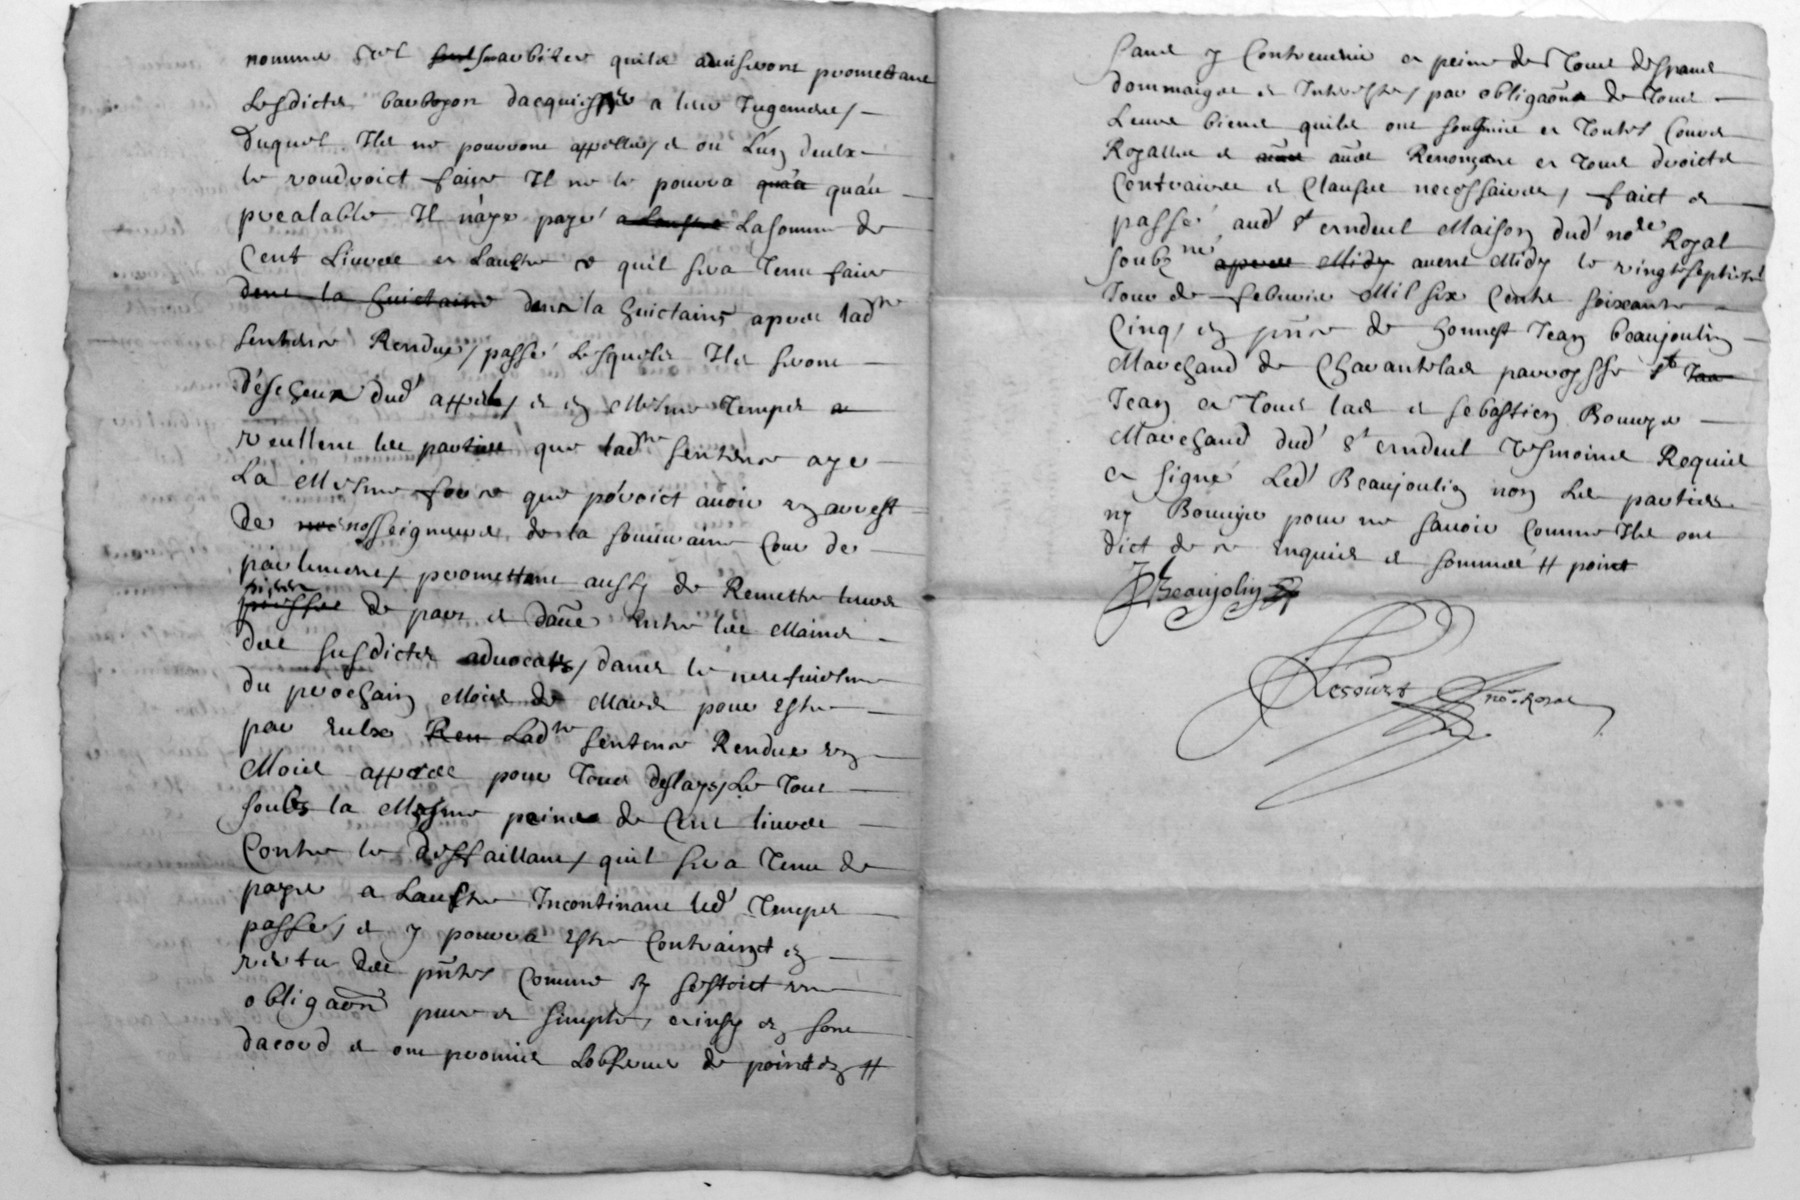 nomme tel surarbitre quilz aviseront promettant
Lesdictes dacquiesser a leur Jugement /
Duquel Ilz ne pourront appeller / et ou Lung deulx
le voudroict faire Il ne le pourra qua'a qu'au
prealable Il n'aye payé a lautre La somme de
Cent Livres et Lauttre ce quil sera tenu faire
dans la huictaine dans la huictaine apres ladte
sentence Rendue / passé Lesquels Ilz seront
Descheux dud' appel / et en Mesme temps
veullent les parties que ladte sentence aye
La Mesme force que pouroict avoir un arrest
De nos nosseigneurs de la souveraine Cour de
parlement / promettant aussy de Remettre leurs
pieces de part et daue entre les Mains
des susdictes advocats / dans le neufviesme
du prochain Mois de Mars pour Estre
par eulx Ren Ladte sentence Rendue un
Mois appres pour tous deslays / Le tout
soubs la Mesme peine de Cent livres
Contre le deffaillant / quil sera tenu de
payer a Lauttre Incontinant led' temps
passé / et y pourra Estre Contrainct en
vertu des pntes Comme sy sestoit une
obligaon pure et simple, ainsy en sont
dacord et ont promis Lobserver de point en #
sans y Contrevenir a peine de tous despans
dommaiges et Interestz / par obligaon de tous
Leurs biens quilz ont soubzmis a toutes Cours
Royalles et aues Renonçant a tous droictz
Contraires et Clauses necessaires / faict et
passé aud' St Maison dud' nore Royal
soubzné apres Midy avant Midy le vingt septiesme
Jour de febvrier Mil six Cents soixante
Cinq / en pnce de honnest Jean beaujoulin
Marchand de parroysse St Jea
Jean et Sebastien Bouuye
Marchand dud' St tesmoins Requis
a signé Led' Beaujoulin non Les parties
ny Bouuye pour ne savoir Comme Ilz ont
dict de ce enquis et sommés # point
JBeaujolin
Lecourt nore Royal